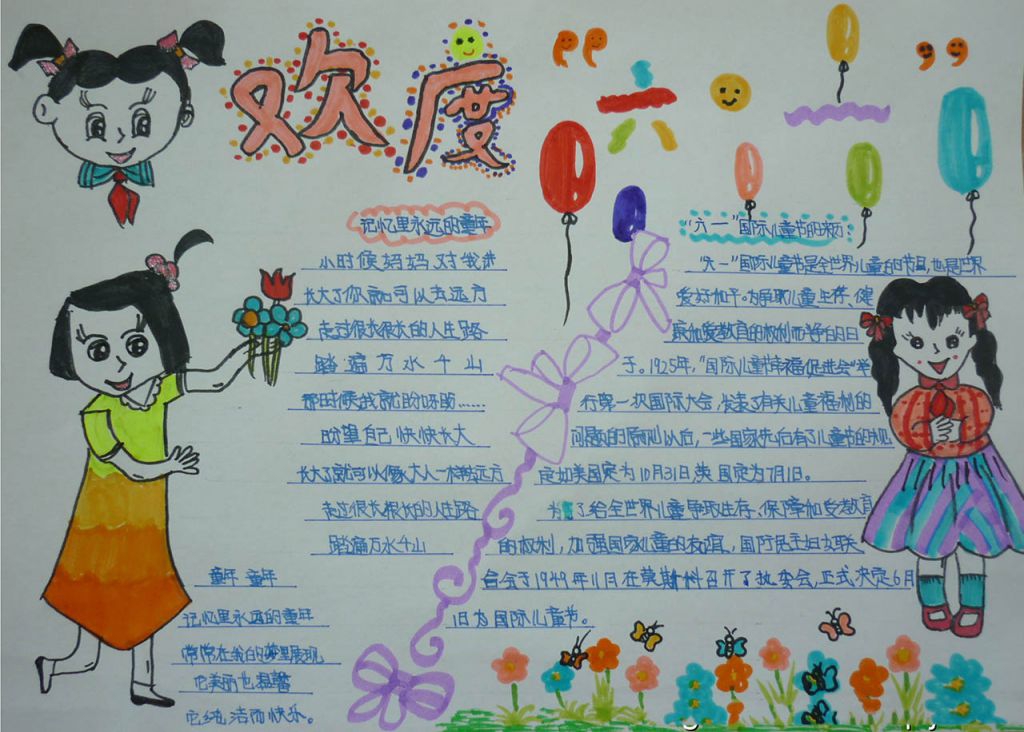 欢度“六一”
记忆里永远的童年
小时候妈妈对我讲
长大了你就可以去远方
走过很长很长的人生路
踏遍万水千山
那时候我就盼呀盼……
盼望自己快快长大
长大了就可以像大人一样走远方
走过很长很长的人生路
踏遍万水千山
童年 童年
记忆里永远的童年
常常在我的梦里展现
它美丽也温馨
它纯洁而快乐。
“六一”国际儿童节的来历
“六一”国际儿童节是全世界儿童的节日,也是世界
爱好和平。为争取儿童生存、健
康和受教育的权利而斗争的日
子。1925年,“国际儿童幸福促进会”举
行第一次国际大会,发表了有关儿童福利的
问题的原则以后,一些国家先后有了儿童节的规
定如美国定为10月31日英国定为7月1日。
为了给全世界儿童争取生存、保障和受教育
的权利,加强国家儿童的友谊,国际民主妇女联
合会于1949年11月在莫斯科召开了执委会,正式决定6月
1日为国际儿童节。